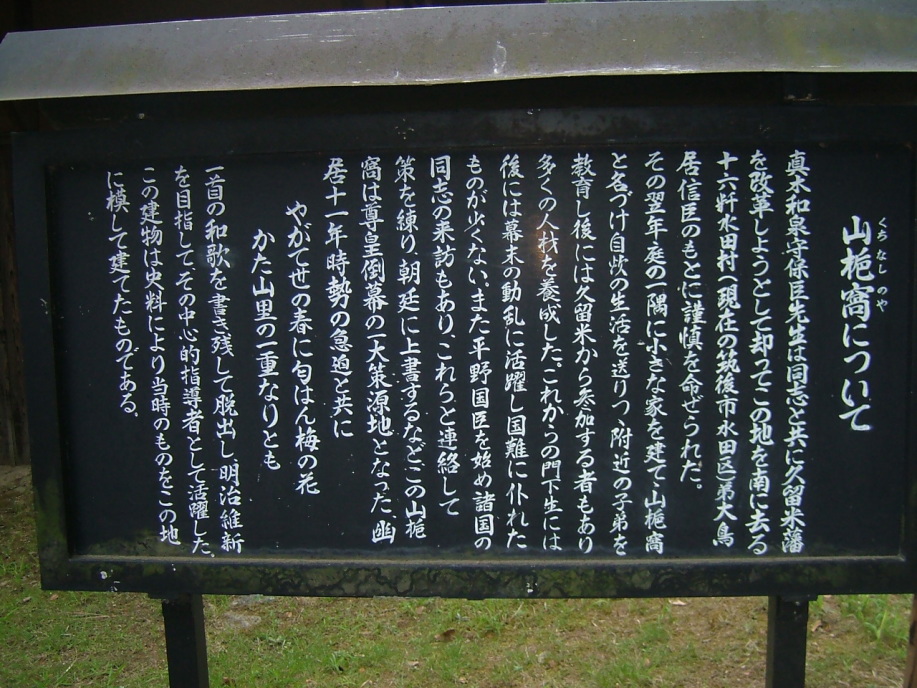 山梔窩について
くちなしのや
真木和泉守保臣先生は同志と共に久留米藩
を改革しようとして却ってこの地を南に去る
十六粁水田村(現在の筑後市水田区)弟大鳥
居信臣のもとに謹慎を命ぜられた。
その翌年庭の一隅に小さな家を建て、山梔窩
と名づけ自炊の生活を送りつゝ附近の子弟を
教育し後には久留米から参加する者もあり
多くの人材を養成した。これからの門下生には
後には幕末の動乱に活躍し国難に仆れた
ものが少くない。また平野国臣を始め諸国の
同志の来訪もあり、これらと連絡して
策を練り朝廷に上書するなどこの山梔
窩は尊皇倒幕の一大策源地となった。幽
居十一年時勢の急迫と共に
やがて世の春に匂はん梅の花
かた山里の一重なりとも
一首の和歌を書き残して脱出し明治維新
を目指してその中心的指導者として活躍した。
この建物は史料により当時のものをこの地
に模して建てたものである。